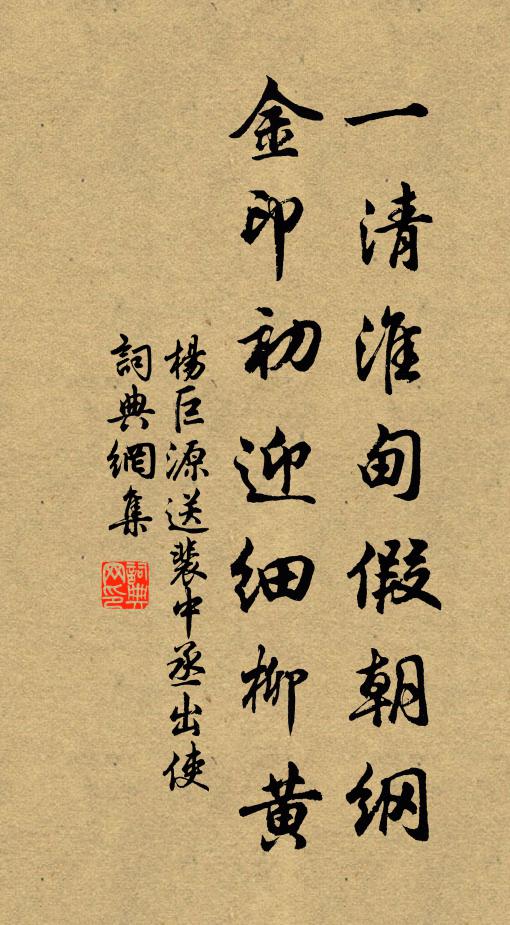 一清淮甸假朝綱
金印初迎細柳黄
楊巨源送裴中丞出使
詞典網集
詞典网印